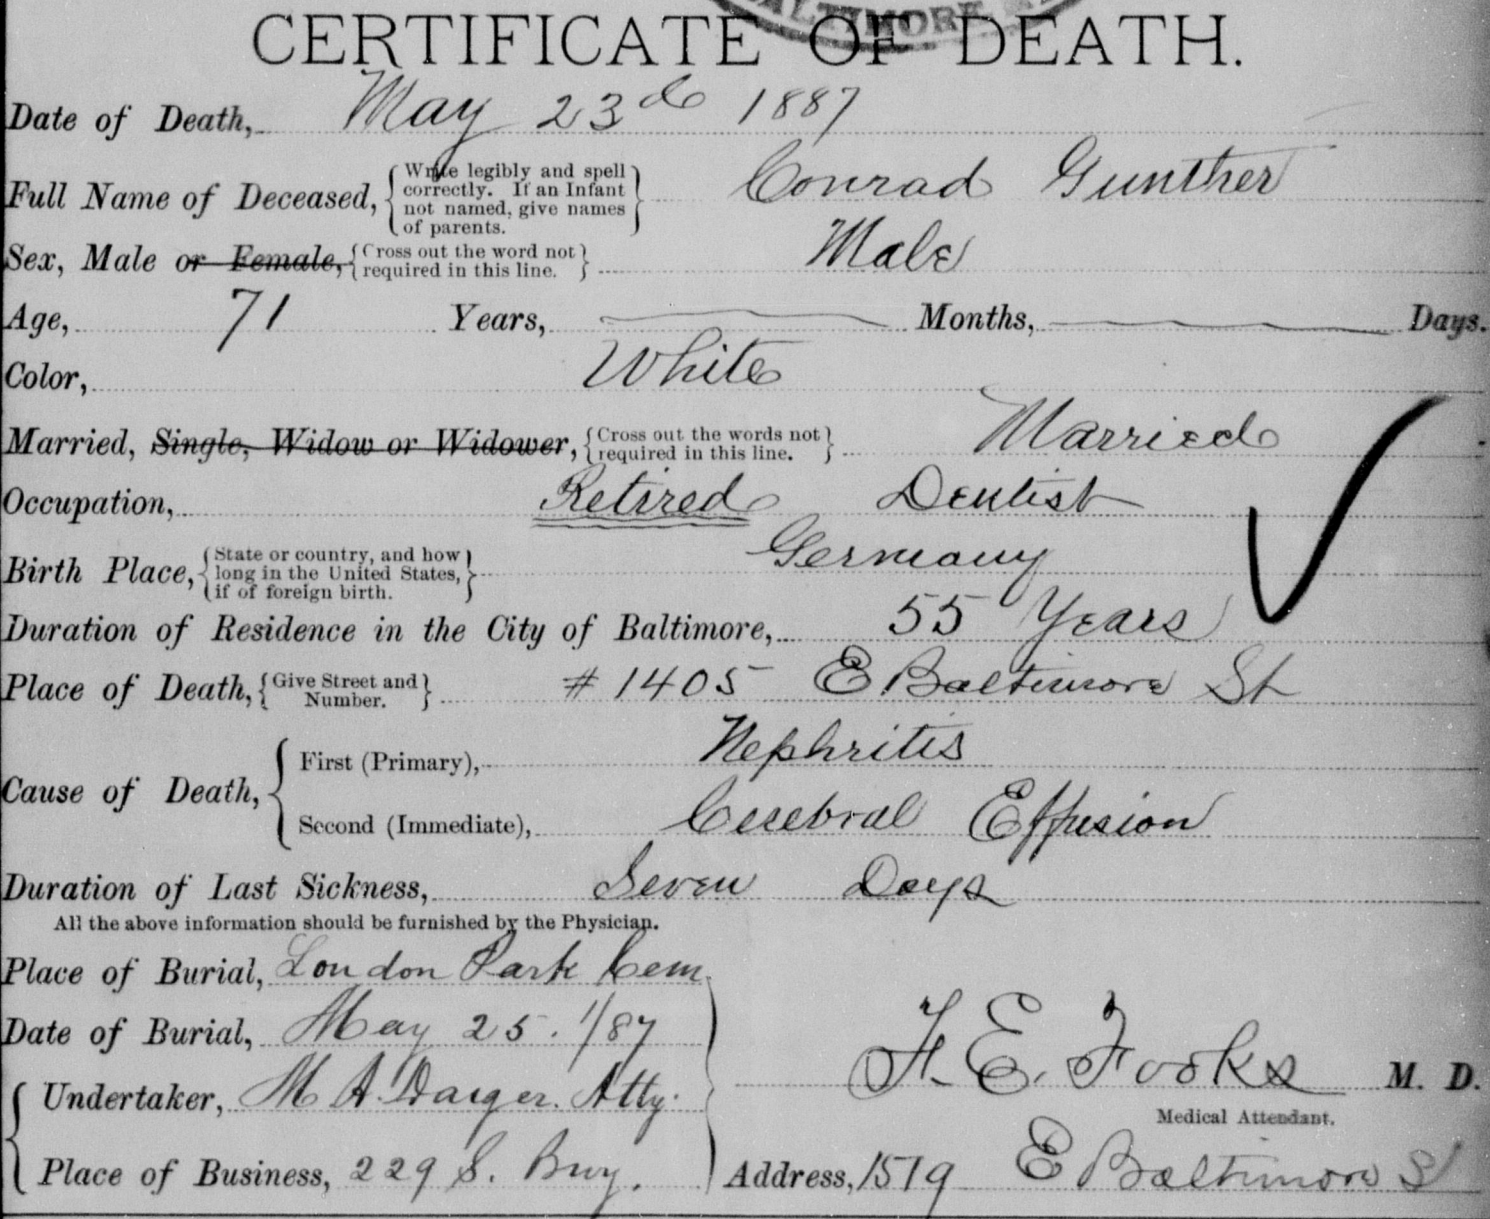 BALTIMORE
CERTIFICATE OF DEATH.
Date of Death, May 23d 1887
Full Name of Deceased, {Write legibly and spell correctly. If an Infant not named, give names of parents.} Conrad Gunther
Sex, Male or Female, {Cross out the word not required in this line.} Male
Age, 71 Years, Months, Days.
Color, White
Married, Single, Widow or Widower, {Cross out the words not required in this line.} Married
Occupation, Retired Dentist
Birth Place, {State or country, and how long in the United States, if of foreign birth.} Germany
Duration of Residence in the City of Baltimore, 55 Years
Place of Death, {Give Street and Number.} #1405 E Baltimore St
Cause of Death, { First (Primary), Nephritis
Second (Immediate), Cerebral Effusion
Duration of Last Sickness, Seven Days
All the above information should be furnished by the Physician.
Place of Burial, London Park Cem.
Date of Burial, May 25. 1/87
Undertaker, M A. Daiger. Atty.
Place of Business, 229 S. Bwy.
F. E. Fooks M. D.
Medical Attendant.
Address, 1519 E Baltimore St